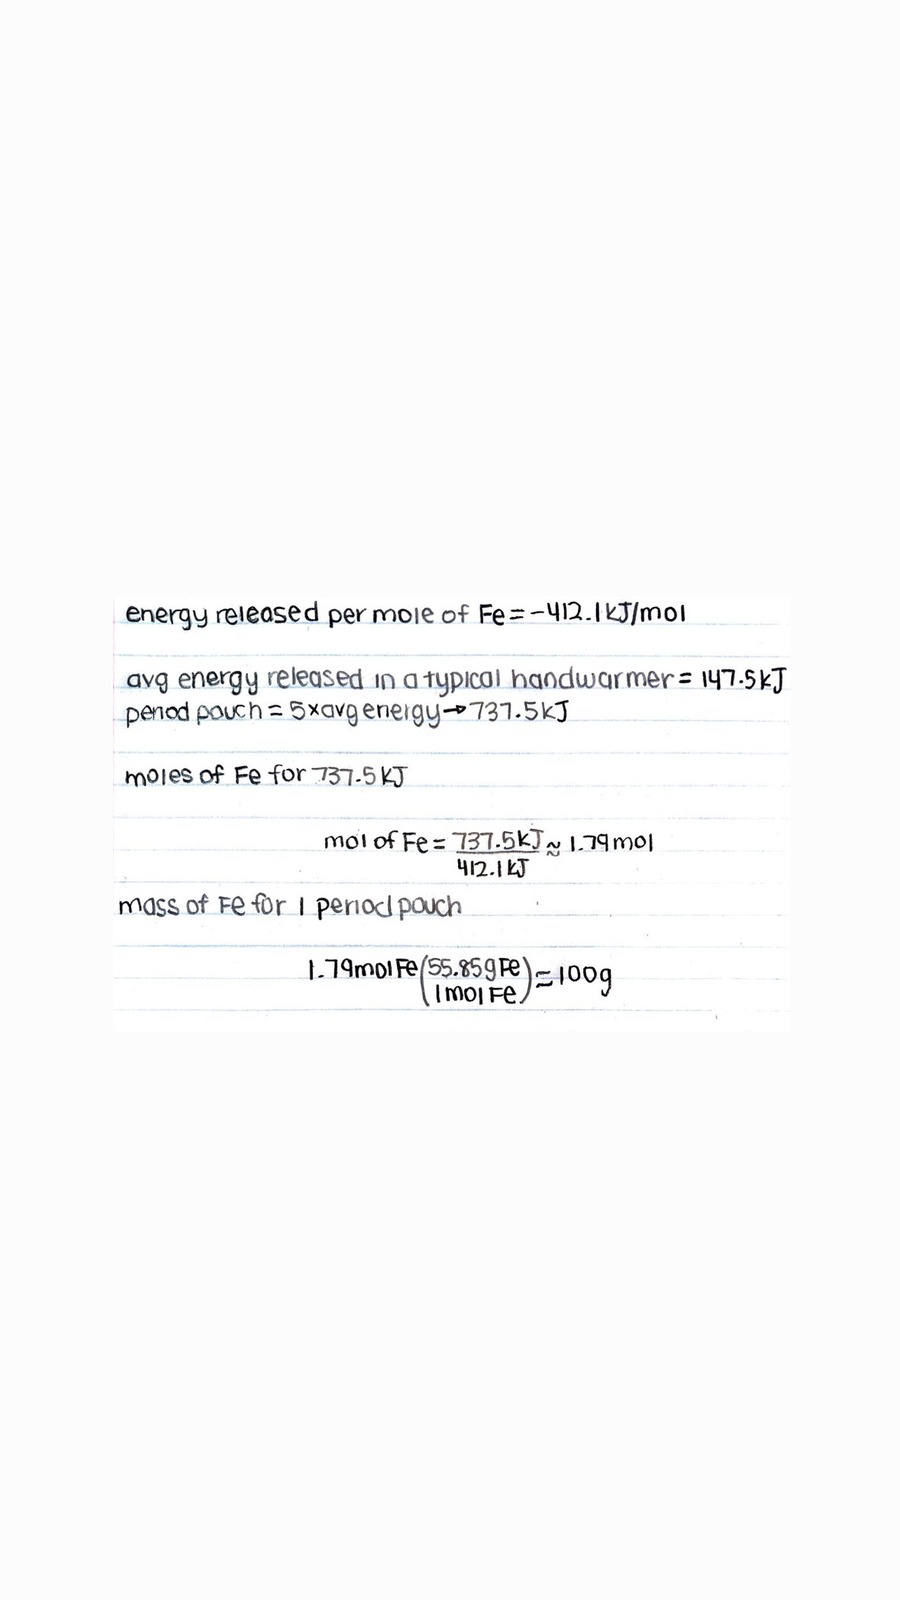 energy released per mole of Fe = -412.1 kJ/mol
avg energy released in a typical handwarmer = 147.5 kJ
period pouch = 5 x avg energy → 737.5 kJ
moles of Fe for 737.5 KJ
mol of Fe = 737.5 kJ / 412.1 kJ ≈ 1.79 mol
mass of Fe for 1 period pouch
1.79 mol Fe (55.85 g Fe / 1 mol Fe) = 100g